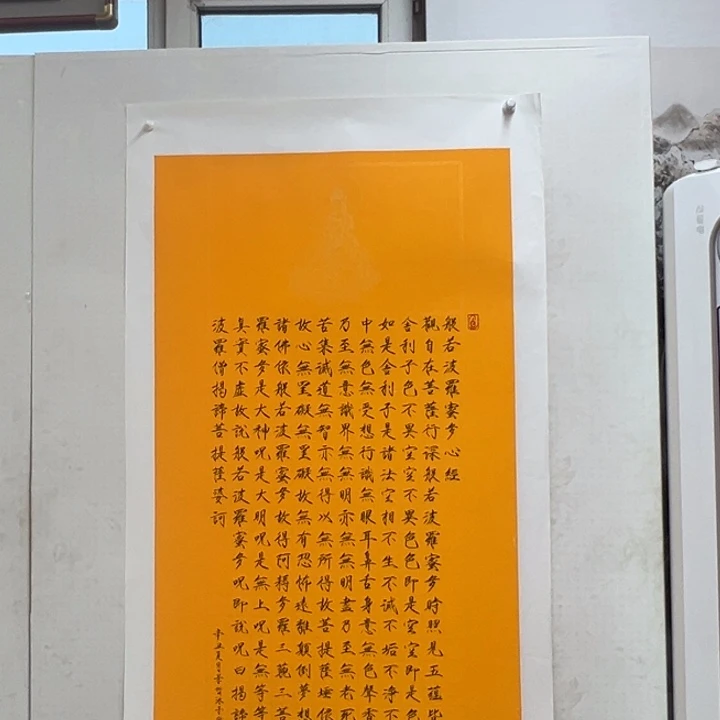 般若波羅蜜多心經
觀自在菩薩行深般若波羅蜜多時照見五蘊皆
舍利子色不異空空不異色色即是空空即是色
如是舍利子是諸法空相不生不滅不垢不淨不
中無色無受想行識無眼耳鼻舌身意無色聲香
乃至無意識界無無明亦無無明盡乃至無老死
苦集滅道無智亦無得以無所得故菩提薩埵依
故心無罣礙無罣礙故無有恐怖遠離顛倒夢想
諸佛依般若波羅蜜多故得阿耨多羅三藐三菩
羅蜜多是大神呪是大明呪是無上呪是無等等
真實不虛故說般若波羅蜜多呪即說呪曰揭諦
波羅僧揭諦菩提薩婆訶
辛丑夏